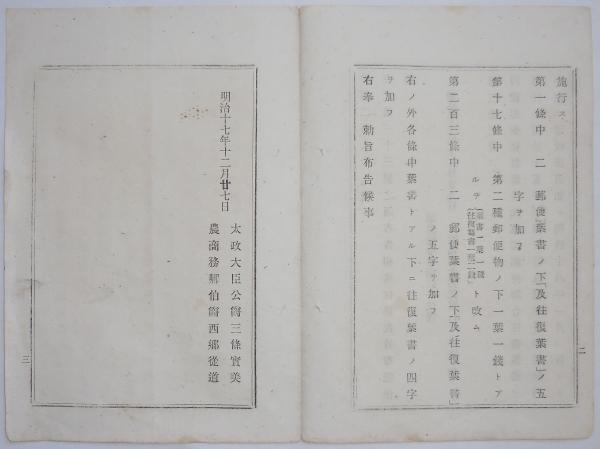 施行ス
第一條中 二 郵便葉書ノ下「及往復葉書」ノ五
字ヲ加フ
第十七條中 第二種郵便物ノ下一葉一錢トア
ルヲ「葉書一葉一錢 往復葉書一葉二錢」ト改ム
第二百三條中 二 郵便葉書ノ下「及往復葉書」
ノ五字ヲ加フ
右ノ外各條中葉書トアル下ニ往復葉書ノ四字
ヲ加フ
右奉 勅旨布告候事
二
明治十七年十二月廿七日
太政大臣公爵三條實美
農商務卿伯爵西郷從道
三